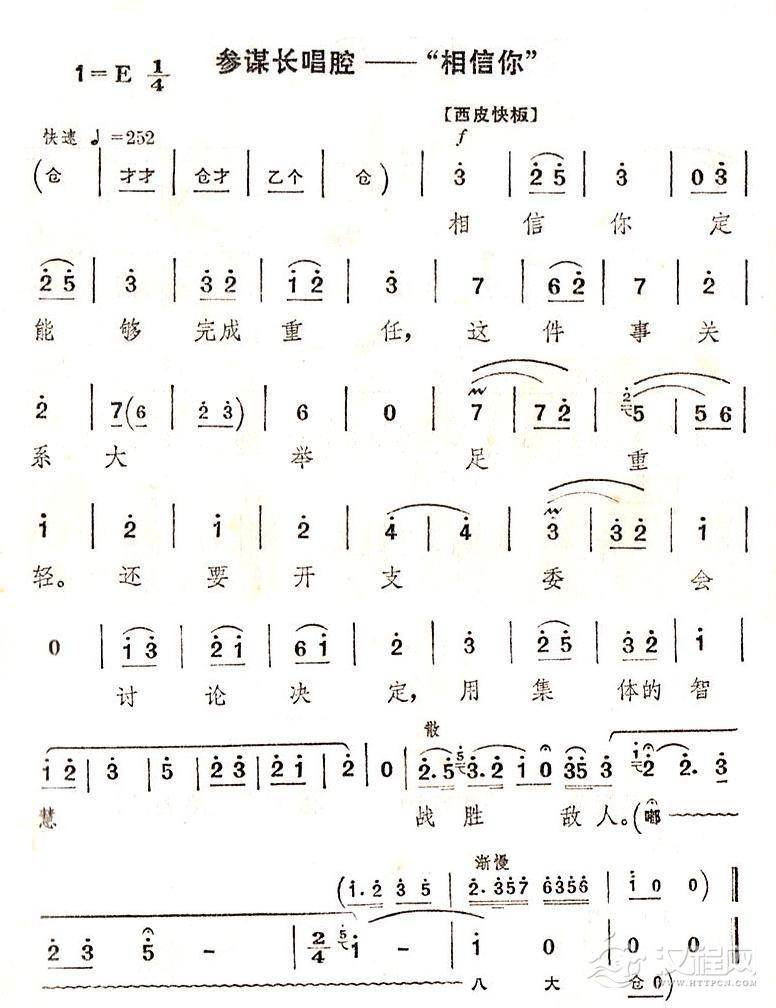 参谋长唱腔——“相信你”
1=E 1/4
【西皮快板】
快速 ♩=252 f
(仓 | 才才 | 仓才 | 乙个 | 仓) | 3̇ | 2̇ 5̇ | 3̇ | 0 3̇ |
相 信 你 定
2̇ 5̇ | 3̇ | 3̇ 2̇ | 1̇ 2̇ | 3̇ | 7 | 6 2̇ | 7 | 2̇ |
能 够 完成 重 任，这 件 事 关
2̇ | 7(6 | 2̇ 3̇) | 6 | 0 | 7 | 7 2̇ | 2̇ 5 | 5 6 |
系 大 举 足 重
1̇ | 2̇ | 1̇ | 2̇ | 4̇ | 4̇ | 3̇ | 3̇ 2̇ | 1̇ |
轻。还 要 开 支 委 会
0 | 1̇ 3̇ | 2̇ 1̇ | 6 1̇ | 2̇ | 3̇ | 2̇ 5̇ | 3̇ 2̇ | 1̇ |
讨 论 决 定，用 集 体的 智
散
1̇ 2̇ | 3̇ | 5̇ | 2̇ 3̇ | 2̇ 1̇ | 2̇ | 0 | 2̇. 5̇ 5̇ 3̇. 2̇ 1̇ 0 3̇5̇ 3̇ 1̇ 2̇ 2̇. 3̇
慧 战 胜 敌 人。(嘟
渐慢
(1̇. 2̇ 3̇ 5̇ | 2̇. 3̇5̇7̇ 6̇3̇5̇6̇ | 1̇ 0 0)
2̇ 3̇ 5̇ - | 2/4 5̇ 1̇ - | 1̇ 0 | 0 0
八 大 仓 0)
汉程网
WWW.HTTPCN.COM